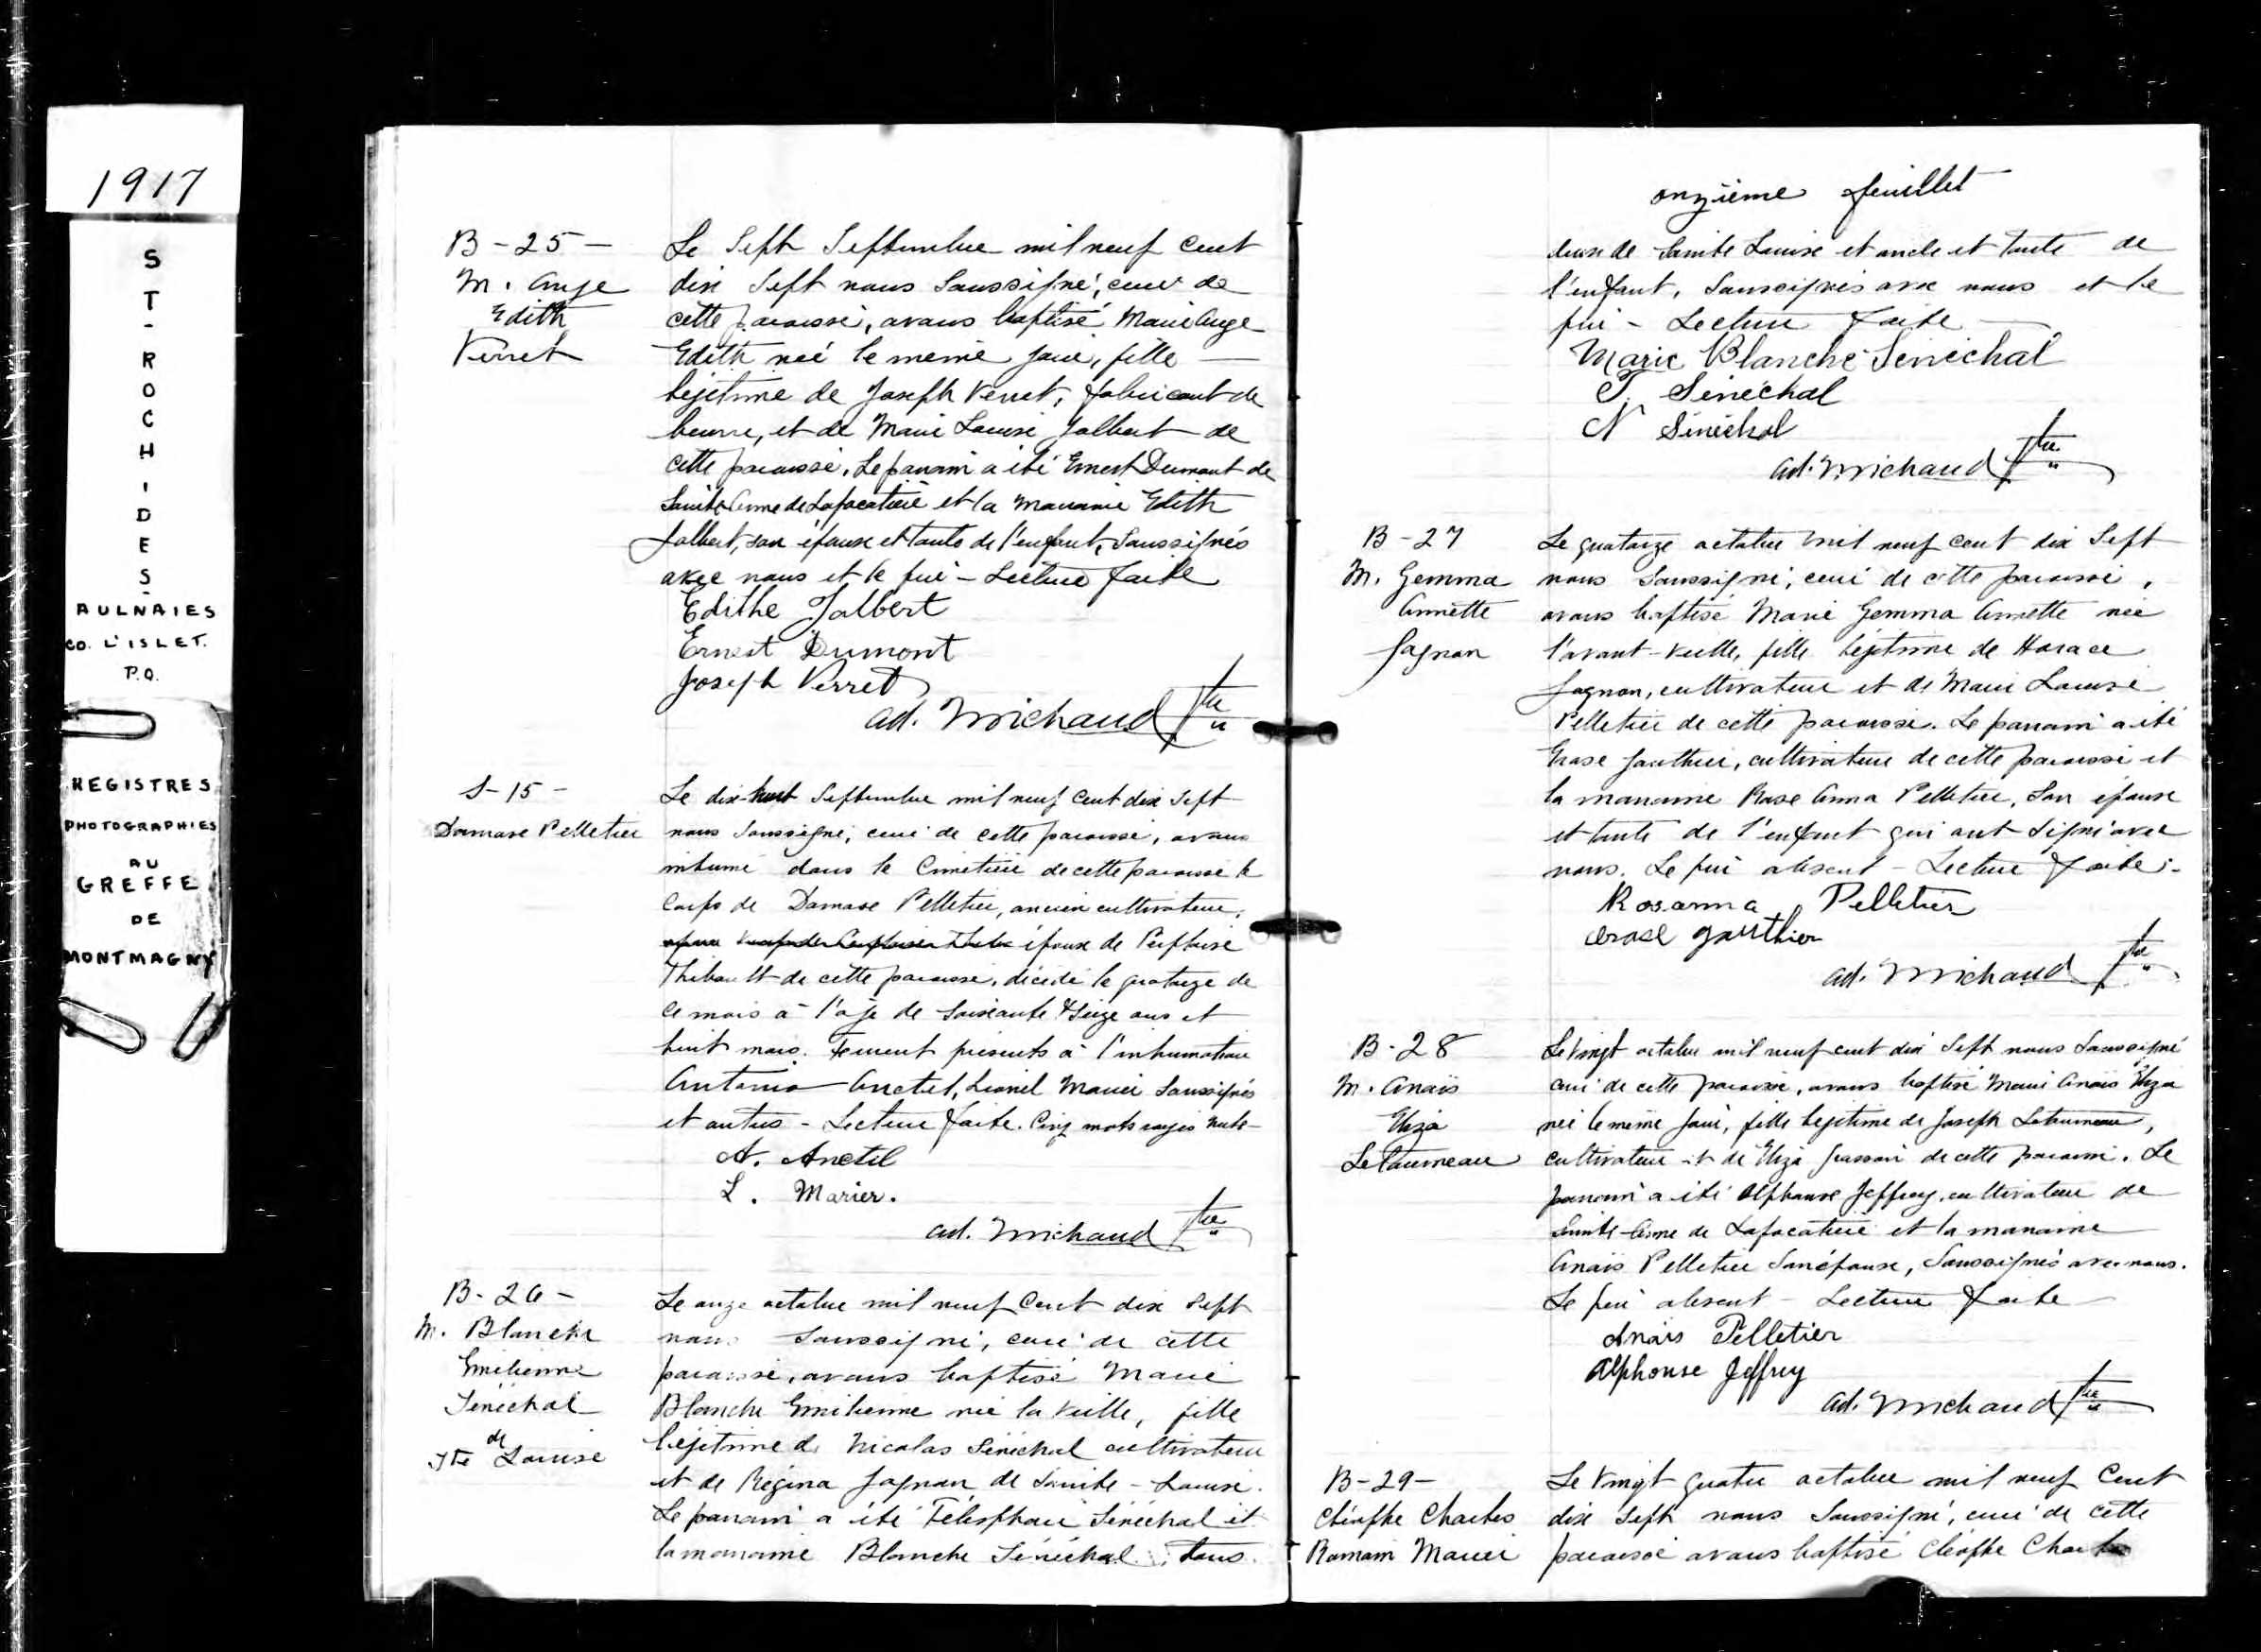 1917
ST-ROCH-DES-
AULNAIES
CO. L'ISLET.
P.Q.
REGISTRES
PHOTOGRAPHIES
AU
GREFFE
DE
MONTMAGNY
B-25-
M. Ange
Edith
Verret
Le Sept Septembre mil neuf cent
dix Sept nous Soussigné, curé de
cette paroisse, avons baptisé Marie Ange
Edith née le même jour, fille
légitime de Joseph Verret, fabricant de
beurre, et de Marie Louise Jalbert de
cette paroisse. Le parrain a été Ernest Dumont de
Sainte Anne de Lapocatière et la marraine Edith
Jalbert, son épouse et tante de l'enfant, Soussignés
avec nous et le père - Lecture faite
Edithe Jalbert
Ernest Dumont
Joseph Verret
Ad. Michaud Ptre
S-15-
Damase Pelletier
Le dix-huit Septembre mil neuf Cent dix Sept
nous Soussigné, curé de cette paroisse, avons
inhumé dans le Cimetière de cette paroisse le
Corps de Damase Pelletier, ancien cultivateur,
époux de
Thibault de cette paroisse, décédé le quatorze de
ce mois à l'âge de soixante & seize ans et
huit mois. Furent présents à l'inhumation
Antonio Anctil, Lionel Marier Soussignés
et autres - Lecture faite. Cinq mots rayés nuls-
A. Anctil
L. Marier.
Ad. Michaud Ptre
B-26-
M. Blanche
Emilienne
Sénéchal
de
Ste Louise
Le onze octobre mil neuf Cent dix Sept
nous Soussigné, curé de cette
paroisse, avons baptisé Marie
Blanche Emilienne née la veille, fille
légitime de Nicolas Sénéchal cultivateur
et de Régina Gagnon de Sainte-Louise.
Le parrain a été Télesphore Sénéchal et
la marraine Blanche Sénéchal, tous
onzième feuillet
deux de Sainte Louise et oncle et tante de
l'enfant, Soussignés avec nous et le
père - Lecture faite
Marie Blanche Sénéchal
T. Sénéchal
N Sénéchal
Ad. Michaud Ptre
B-27
M. Gemma
Annette
Gagnon
Le quatorze octobre mil neuf cent dix Sept
nous Soussigné, curé de cette paroisse,
avons baptisé Marie Gemma Annette née
l'avant-veille, fille légitime de Horace
Gagnon, cultivateur et de Marie Louise
Pelletier de cette paroisse. Le parrain a été
Gauthier, cultivateur de cette paroisse et
la marraine Rose Anna Pelletier, Son épouse
et tante de l'enfant qui ont Signé avec
nous. Le père absent - Lecture faite.
Rosanna Pelletier
Gauthier
Ad. Michaud Ptre
B-28
M. Anaïs
Eliza
Letourneau
Le Vingt octobre mil neuf cent dix Sept nous Soussigné
curé de cette paroisse, avons baptisé Marie Anaïs Eliza
née le même jour, fille légitime de Joseph Letourneau,
cultivateur et de Eliza de cette paroisse. Le
parrain a été Alphonse Jeffrey, cultivateur de
Sainte-Anne de Lapocatière et la marraine
Anaïs Pelletier Son épouse, Soussignés avec nous.
Le père absent - Lecture faite
Anais Pelletier
Alphonse Jeffrey
Ad. Michaud Ptre
B-29-
Cléophe Charles
Romain Marier
Le Vingt quatre octobre mil neuf Cent
dix Sept nous Soussigné, curé de cette
paroisse avons baptisé Cléophe Charles